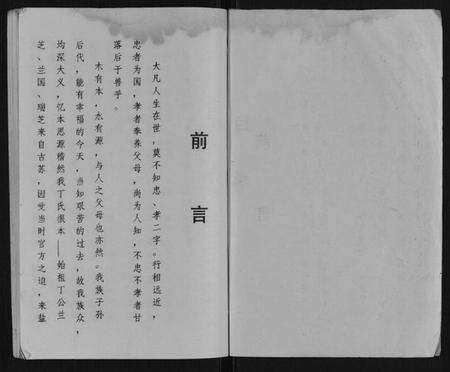 前言
大凡人生在世，莫不知忠、孝二字。行相远近，
忠者为国，孝者奉养父母，尚为人知，不忠不孝者甘
落后于兽乎。
木有本，水有源，与人之父母也亦然。我族子孙
后代，能有幸福的今天，当知艰苦的过去，故我族众，
均深大义，忆本思源稽然我丁氏根本——始祖丁公兰
芝、兰国、瑞芝来自古苏，因世当时官方之迫，来盐